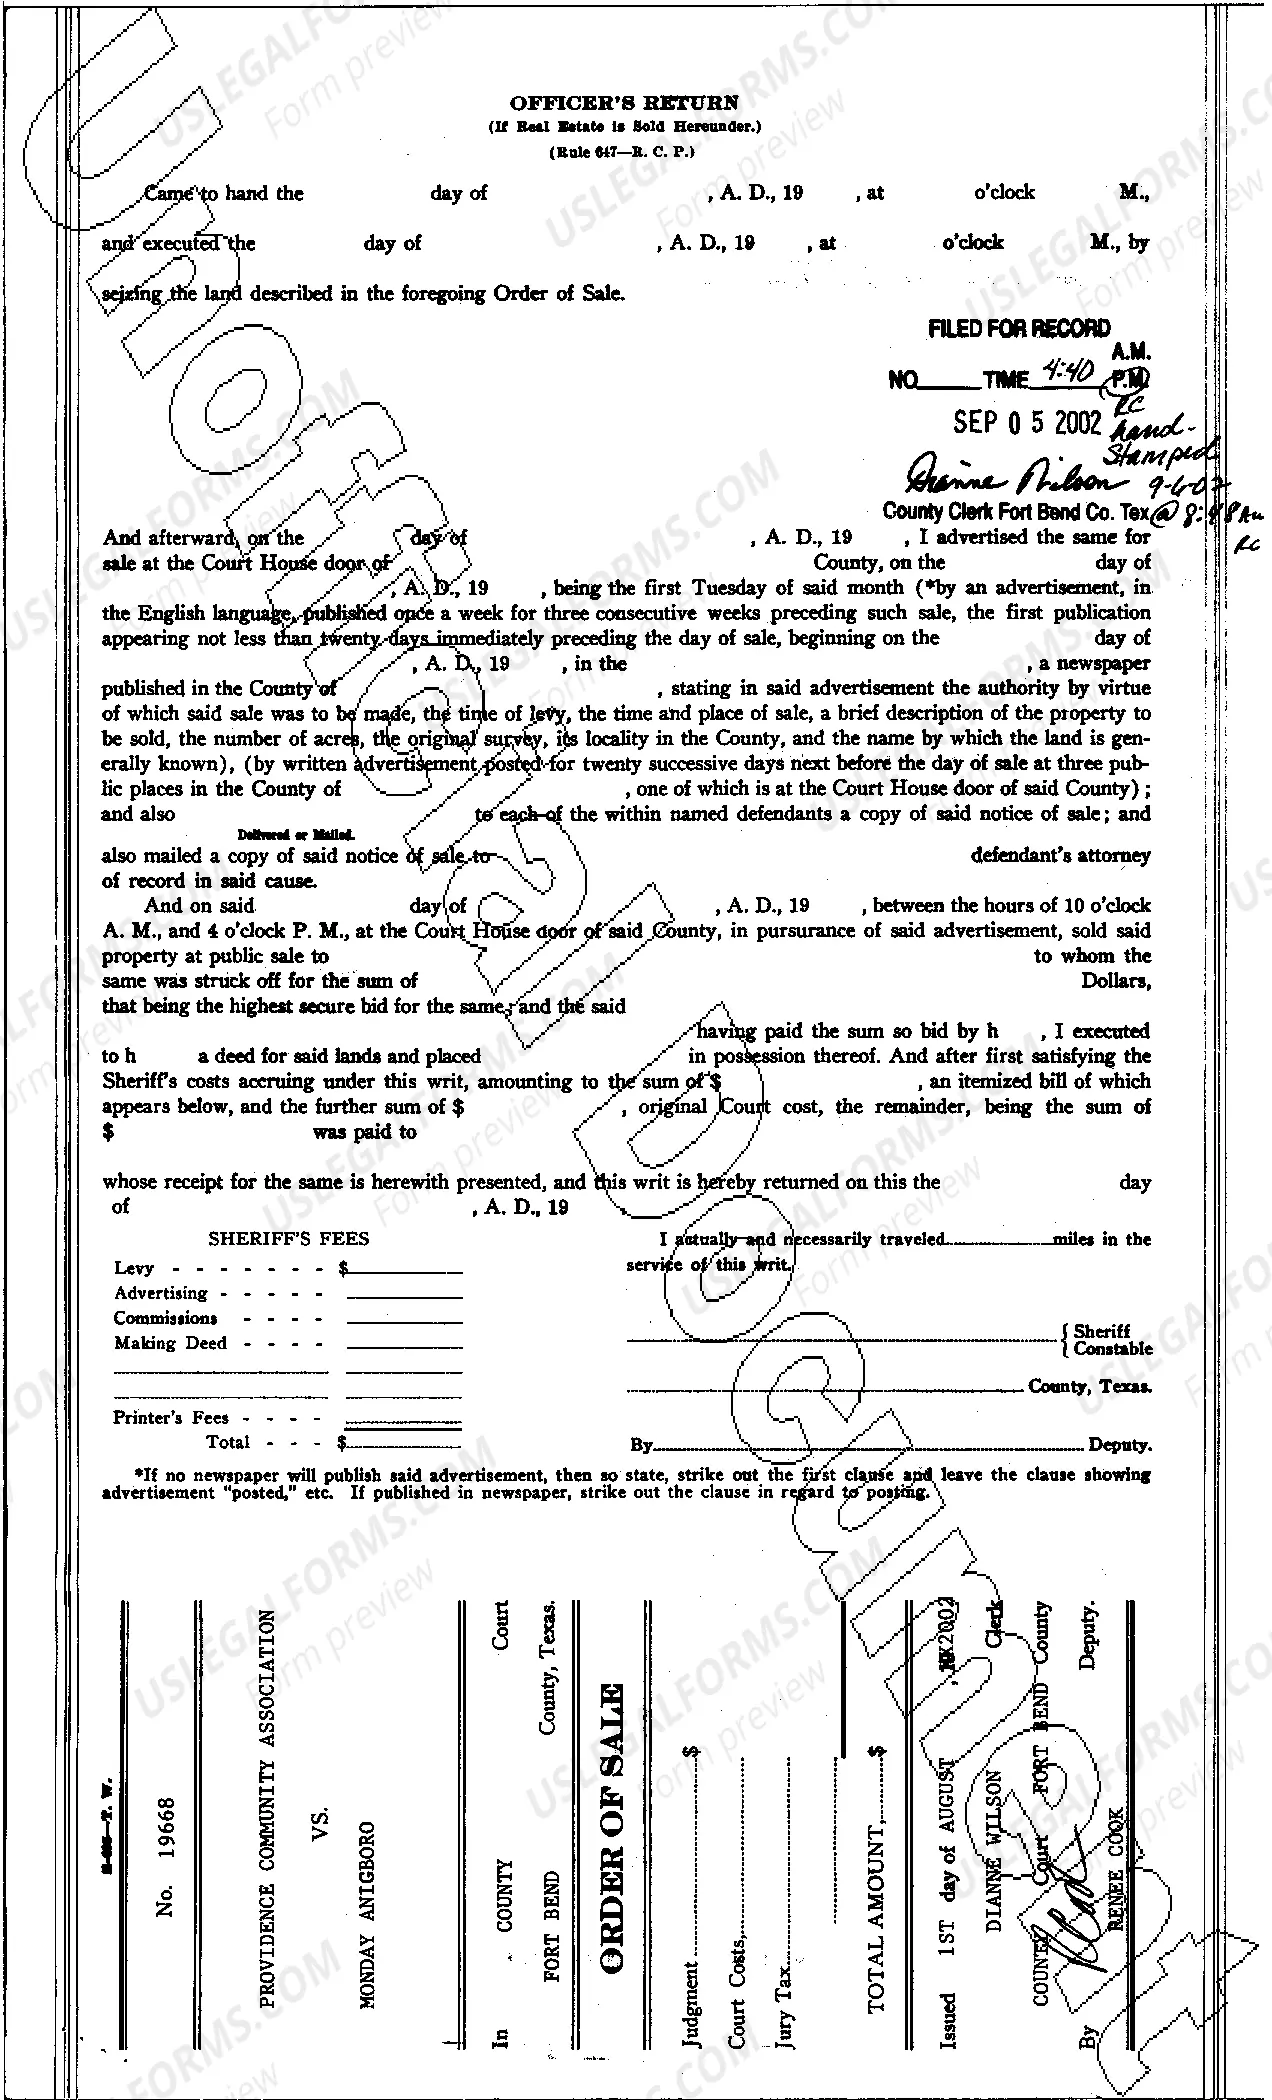 OFFICER'S RETURN
(If Real Estate is Sold Hereunder.)
(Rule 647—R. C. P.)
Came to hand the day of , A. D., 19 , at o'clock M.,
and executed the day of , A. D., 19 , at o'clock M., by
seizing the land described in the foregoing Order of Sale.
FILED FOR RECORD
A.M.
NO TIME 4:40 P.M.
RC
SEP 05 2002 hand-
Stamped
Dianne Wilson 9-6-02
County Clerk Fort Bend Co. Tex @ 8:48 AM
RC
And afterward, on the day of , A. D., 19 , I advertised the same for
sale at the Court House door of County, on the day of
, A. D., 19 , being the first Tuesday of said month (*by an advertisement, in
the English language, published once a week for three consecutive weeks preceding such sale, the first publication
appearing not less than twenty days immediately preceding the day of sale, beginning on the day of
, A. D., 19 , in the , a newspaper
published in the County of , stating in said advertisement the authority by virtue
of which said sale was to be made, the time of levy, the time and place of sale, a brief description of the property to
be sold, the number of acres, the original survey, its locality in the County, and the name by which the land is gen-
erally known), (by written advertisement posted for twenty successive days next before the day of sale at three pub-
lic places in the County of , one of which is at the Court House door of said County) ;
and also to each of the within named defendants a copy of said notice of sale; and
Delivered or Mailed.
also mailed a copy of said notice of sale to defendant's attorney
of record in said cause.
And on said day of , A. D., 19 , between the hours of 10 o'clock
A. M., and 4 o'clock P. M., at the Court House door of said County, in pursurance of said advertisement, sold said
property at public sale to to whom the
same was struck off for the sum of Dollars,
that being the highest secure bid for the same; and the said
having paid the sum so bid by h , I executed
to h a deed for said lands and placed in possession thereof. And after first satisfying the
Sheriff's costs accruing under this writ, amounting to the sum of $ , an itemized bill of which
appears below, and the further sum of $ , original Court cost, the remainder, being the sum of
$ was paid to
whose receipt for the same is herewith presented, and this writ is hereby returned on this the day
of , A. D., 19
SHERIFF'S FEES
Levy - - - - - - - $
Advertising - - - - -
Commissions - - - -
Making Deed - - - -
Printer's Fees - - - -
Total - - - $
I actually and necessarily traveled miles in the
service of this writ.
{ Sheriff
{ Constable
County, Texas.
By Deputy.
*If no newspaper will publish said advertisement, then so state, strike out the first clause and leave the clause showing
advertisement "posted," etc. If published in newspaper, strike out the clause in regard to posting.
No. 19668
PROVIDENCE COMMUNITY ASSOCIATION
VS.
MONDAY ANIGBORO
In COUNTY Court
FORT BEND County, Texas.
ORDER OF SALE
Judgment $
Court Costs,
Jury Tax
TOTAL AMOUNT, $
Issued 1ST day of AUGUST 2002
DIANNE WILSON Clerk
COUNTY Court FORT BEND County
By RENEE COOK Deputy.
Unofficial Document
USLEGALFORMS.COM
Form preview